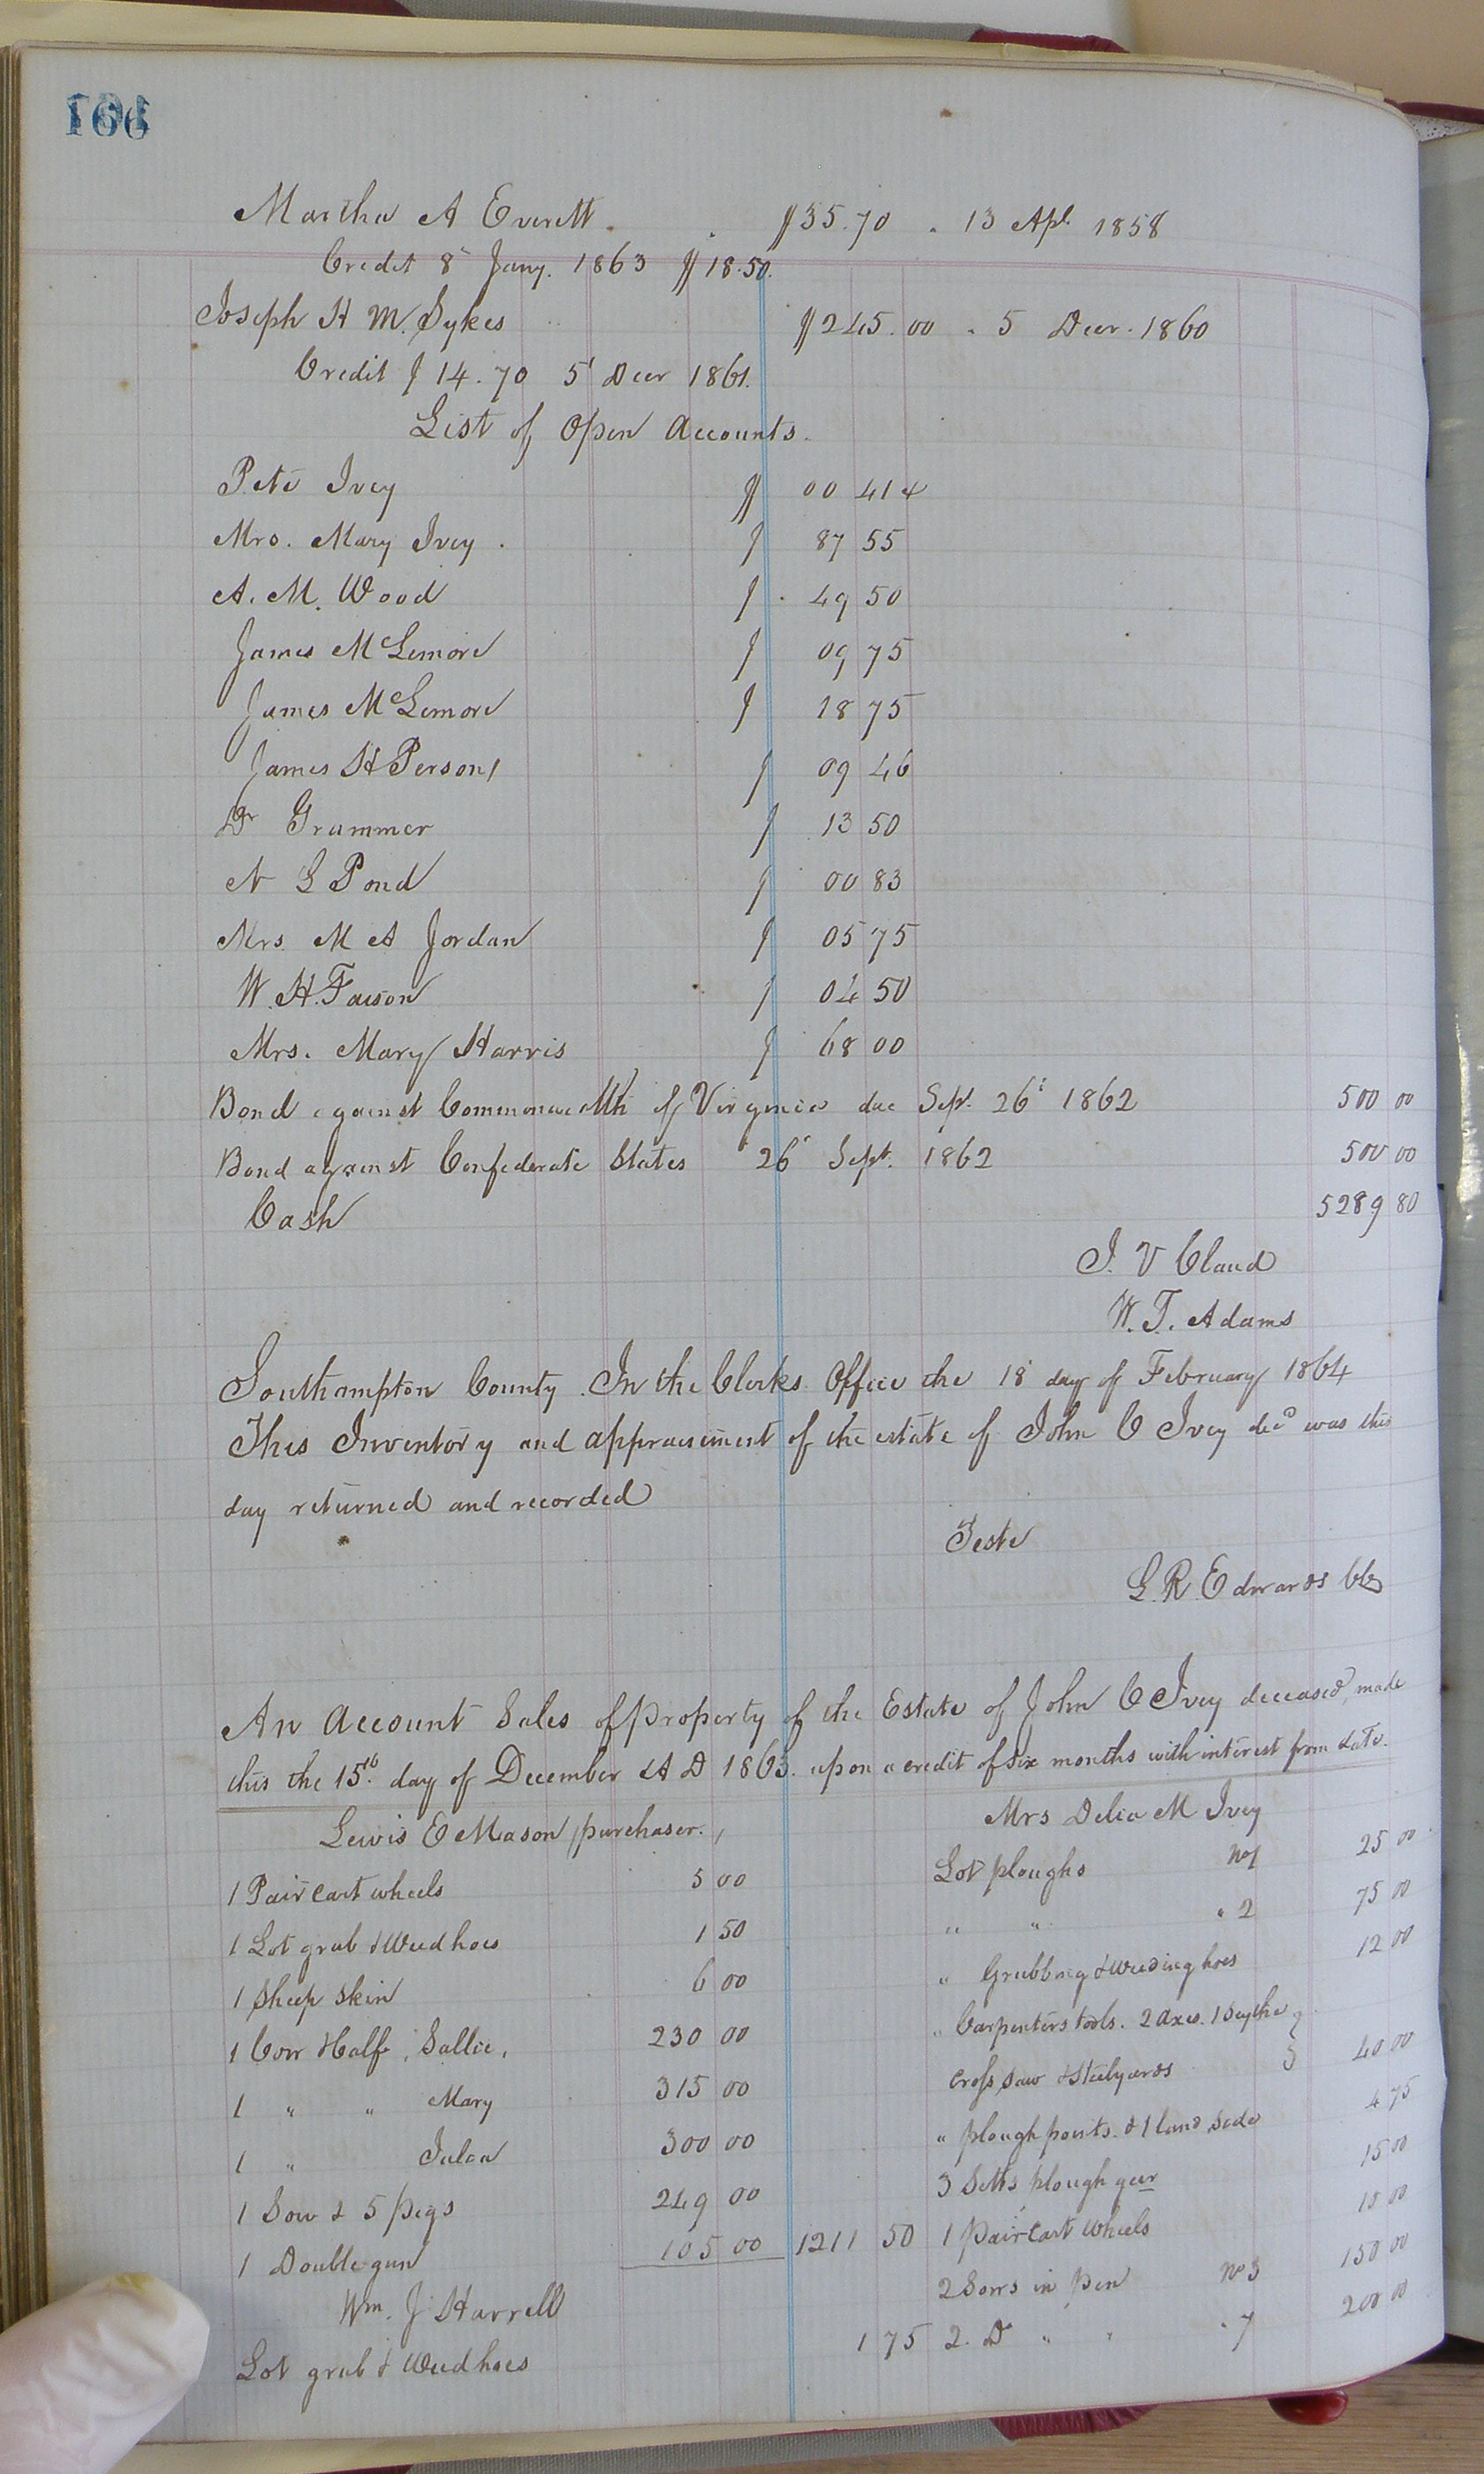 166
Martha A Everett . . $35.70 . 13 Apl. 1858
Credit 8 Jany. 1863 $18.50.
Joseph H M. Sykes $245.00 . 5 Decr. 1860
Credit $14.70 5' Decr 1861.
List of Open Accounts.
Pete Ivey $ 00 41
Mrs. Mary Ivey . $ 87 55
A. M. Wood $ 49 50
James McLemore $ 09 75
James McLemore $ 18 75
James H Person $ 09 46
Dr Grammer $ 13 50
N L Pond $ 00 83
Mrs M A Jordan $ 05 75
W. H. Faison $ 04 50
Mrs. Mary Harris $ 68 00
Bond against Commonwealth of Virginia due Sept. 26' 1862 500 00
Bond against Confederate States 26' Sept. 1862 500 00
Cash 5289 80
J. V Claud
W. T. Adams
Southampton County. In the Clerks Office the 18 day of February 1864
This Inventory and appraisement of the estate of John C Ivey decd was this
day returned and recorded
Teste
L. R. Edwards Clk
An Account Sales of property of the Estate of John C Ivey deceased, made
this the 15th day of December A D 1863. upon a credit of six months with interest from date.
Lewis E Mason purchaser.
1 Pair cart wheels 5 00
1 Lot grub & Weed hoes 1 50
1 Sheep skin 6 00
1 Cow & Calf, Sallie, 230 00
1 " " Mary 315 00
1 " Julia 300 00
1 Sow & 5 pigs 249 00
1 Double gun 105 00 1211 50
Wm. J Harrell
Lot grub & Weed hoes 1 75
Mrs Delia M Ivey
Lot ploughs No 1 25 00
" " " 2 75 00
" Grubbing & Weeding hoes 12 00
" Carpenters tools. 2 Axes. 1 Scythe
Cross saw & Steelyards 40 00
" plough points. & 1 land side 4 75
3 Setts plough gear 15 00
1 pair Cart Wheels 10 00
2 Sows in pen No 3 150 00
2. Do " " " 7 200 00